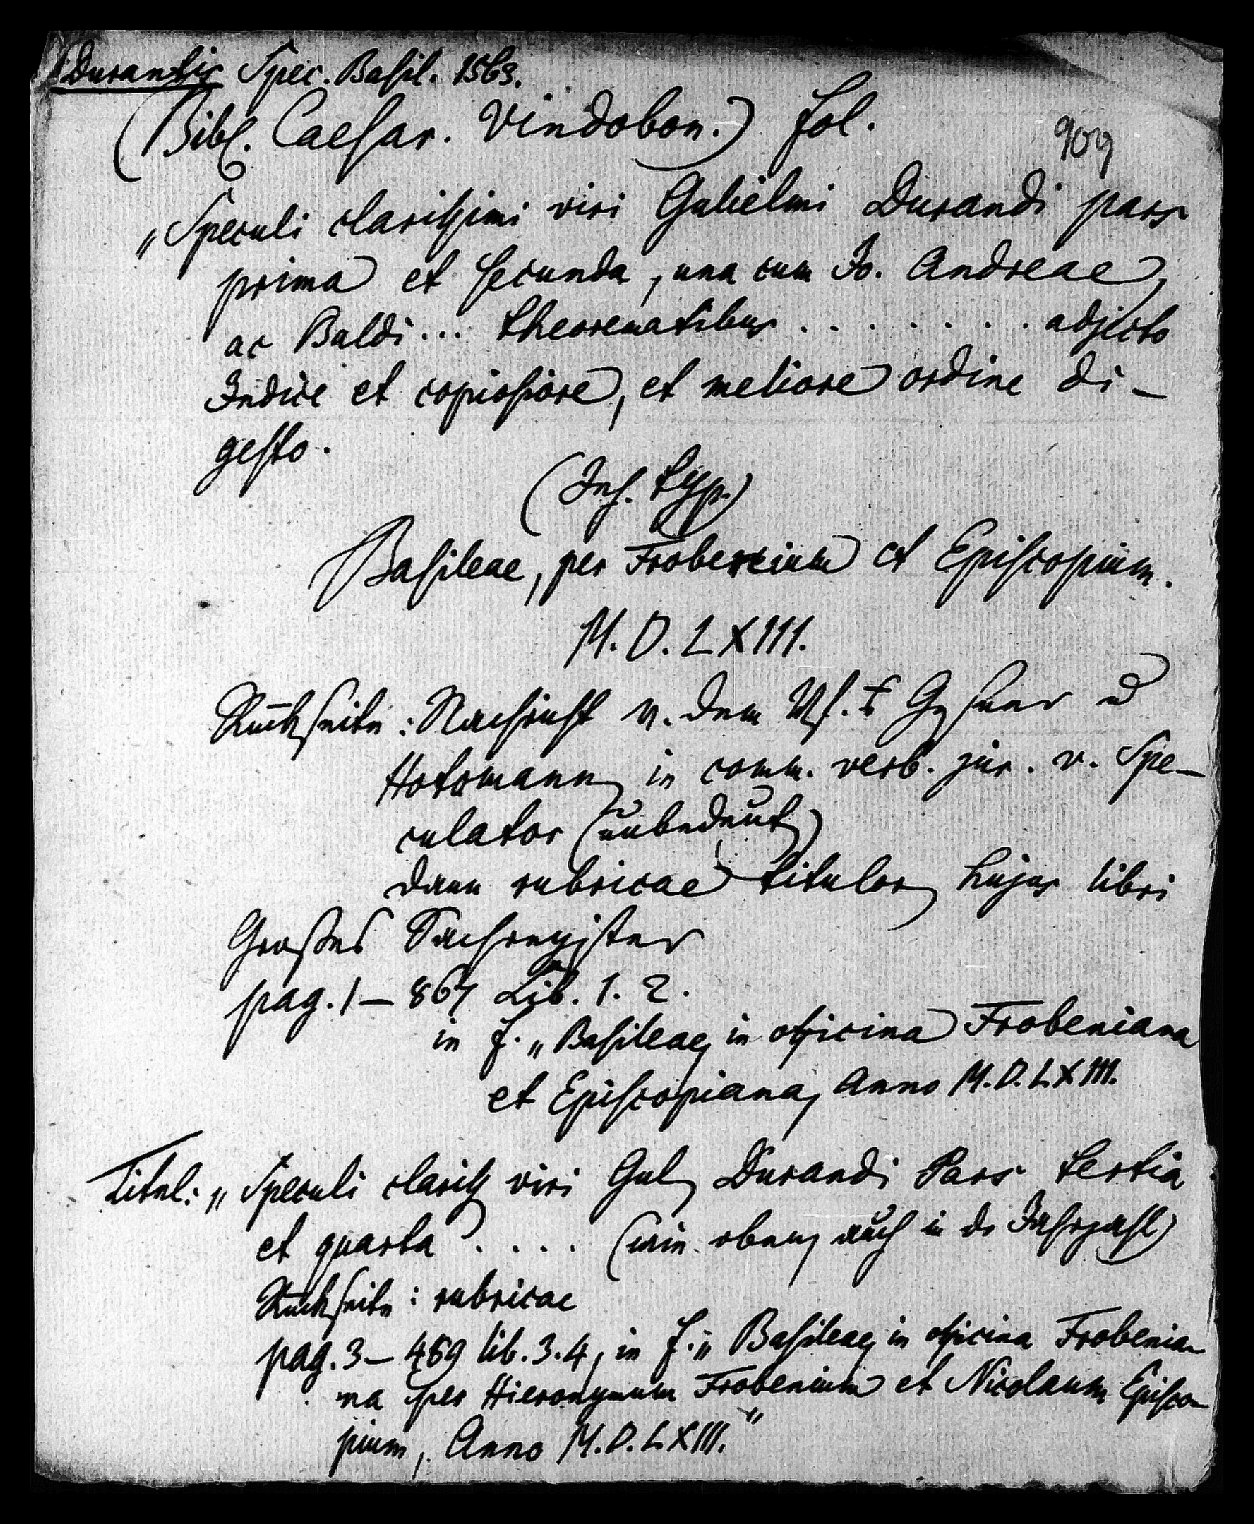 Durantis Spec. Basil. 1563.
(Bibl. Caesar. Vindobon.) fol.
909
„Speculi clarissimi viri Gulielmi Durandi pars
prima et secunda, una cum Jo. Andreae,
ac Baldi... theorematibus . . . . . . . adjecto
Indice et copiosiore, et meliore ordine di-
gesto.
(Ins. typ.)
Basileae, per Frobenium et Episcopium.
M.D.LXIII.
Rückseite: Nachricht v. dem Vf. Gesner u
Hotomann in comm. verb. jur. v. Spe-
culator (unbedeut)
dann rubricae titulor hujus libri
Großes Sachregister
pag. 1 – 867 Lib. 1. 2.
in f. „Basileae, in officina Frobeniana
et Episcopiana, Anno M.D.LXIII.
Titul: „Speculi clariss viri Gul, Durandi Pars tertia
et quarta . . . . (wie oben, auch in dr Jahrzahl)
Rückseite: rubricae
pag. 3 – 469 lib. 3. 4, in f. „Basileae, in officina Frobenia-
na per Hieronymum Frobenium et Nicolaum Episco-
pium, Anno M.D.LXIII.“